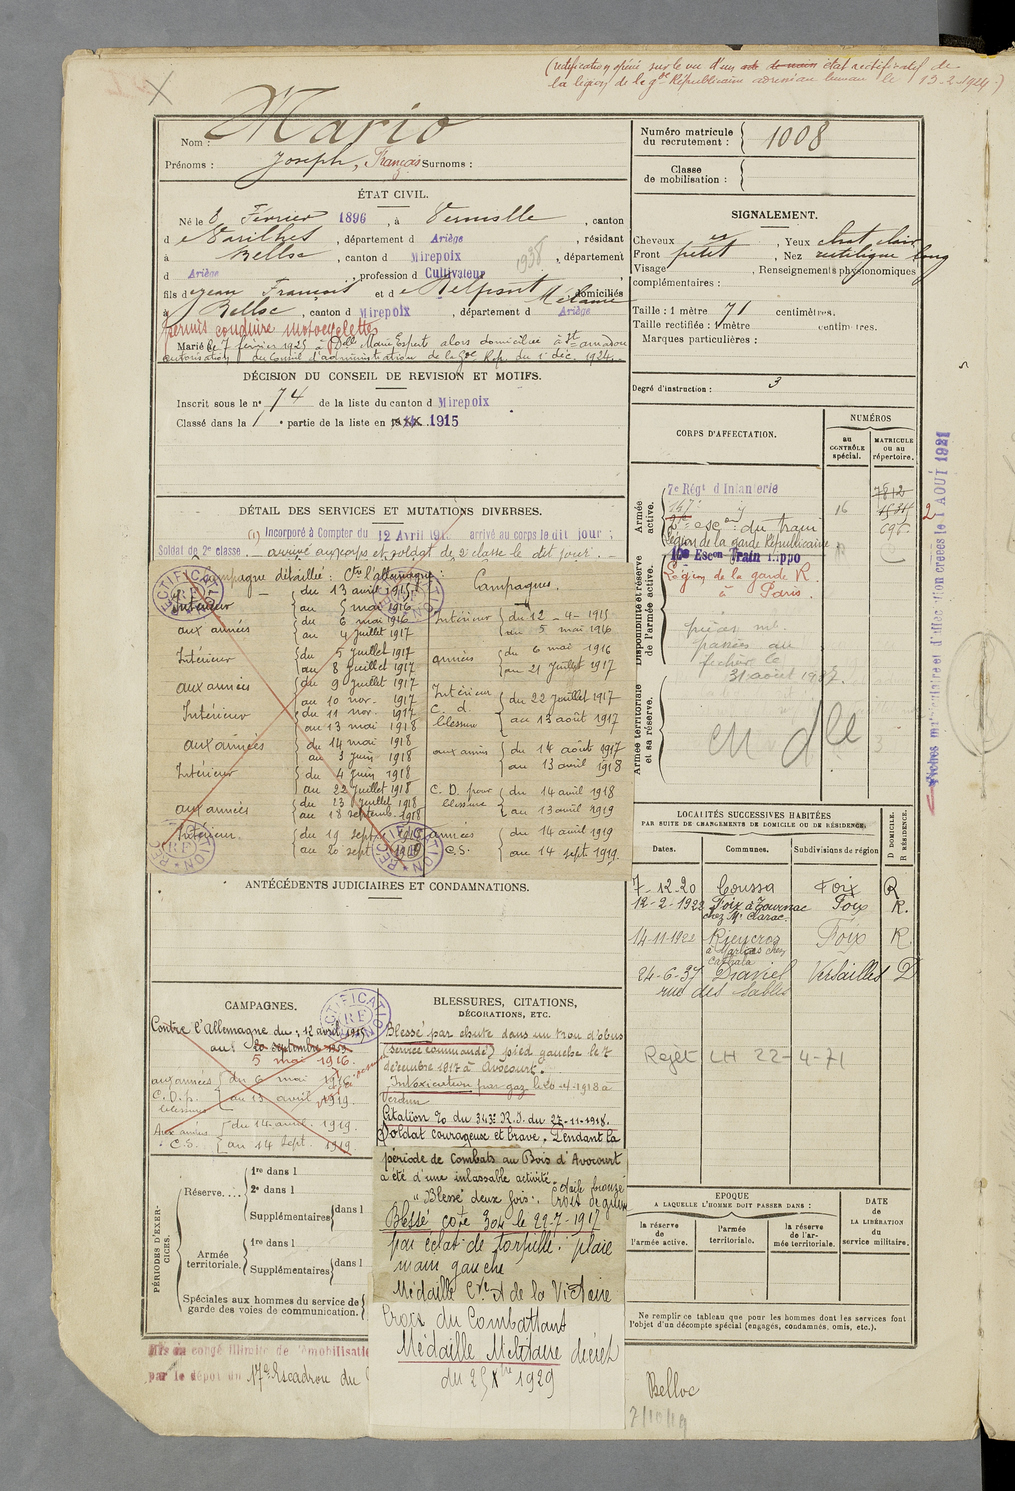 (rectification opérée sur le vu d'un état rectificatif de
la légion de la gde Républicaine le 13-2-1924)
Nom : Mario
Prénoms : Joseph, François Surnoms :
Numéro matricule du recrutement : 1008
Classe de mobilisation :
ÉTAT CIVIL.
Né le 8 Février 1896, à Vernolle, canton
d e Varilhes, département d Ariège, résidant
à Belloc, canton d Mirepoix, département
1938
d Ariège, profession d Cultivateur
fils de Jean François et de Delpont Mélanie domiciliés
à Belloc, canton d Mirepoix, département d Ariège
permis conduire motocyclettes
Marié le 7 février 1925 à Dlle Marie Expert alors domiciliée à St Amadou
autorisation du Conseil d'administration de la Gde Rép. du 1 déc. 1924.
SIGNALEMENT.
Cheveux , Yeux
Front petit, Nez rectiligne long
Visage , Renseignements physionomiques
complémentaires :
Taille : 1 mètre 71 centimètres.
Taille rectifiée : 1 mètre centimètres.
Marques particulières :
Degré d'instruction : 3
DÉCISION DU CONSEIL DE REVISION ET MOTIFS.
Inscrit sous le n° 74 de la liste du canton d Mirepoix
Classé dans la 1 partie de la liste en 1915
DÉTAIL DES SERVICES ET MUTATIONS DIVERSES.
(1) Incorporé à Compter du 12 Avril 191 arrivé au corps le dit jour :
Soldat de 2e classe. arrivé au corps et soldat de 2e classe le dit jour.
Campagne détaillée : Cte l'allemagne :
Intérieur du 13 avril 1915
au 5 mai 1916
aux armées du 6 mai 1916
au 4 juillet 1917
Intérieur du 5 juillet 1917
au 8 juillet 1917
aux armées du 9 juillet 1917
au 10 nov. 1917
Intérieur du 11 nov. 1917
au 13 mai 1918
aux armées du 14 mai 1918
au 3 juin 1918
Intérieur du 4 juin 1918
au 22 juillet 1918
aux armées du 23 juillet 1918
au 18 septemb. 1918
Intérieur du 19 sept.
au 20 sept. 1919
Campagnes.
Intérieur du 12-4-1915
au 5 mai 1916
armées du 6 mai 1916
au 21 juillet 1917
Intérieur C. d. blessure du 22 juillet 1917
au 13 août 1917
aux armées du 14 août 1917
au 13 avril 1918
C. D. pour blessure du 14 avril 1918
au 13 avril 1919
armées C.S. du 14 avril 1919
au 14 sept. 1919.
RECTIFICATION
CORPS D'AFFECTATION.
NUMÉROS
au CONTRÔLE spécial.
MATRICULE ou au répertoire.
Armée active.
7e Régt d'Infanterie 7812
147e 16 1534
esc on du train 696
Légion de la garde Républicaine
Disponibilité et réserve de l'armée active.
Escon Train Hippo
Légion de la garde R.
à Paris.
pièces mt.
passées au
fichier le
31 août 1937.
Armée territoriale et sa réserve.
Fiches matriculaire et d'affectation créées le 1 AOUT 1921
2
LOCALITÉS SUCCESSIVES HABITÉES
PAR SUITE DE CHANGEMENTS DE DOMICILE OU DE RÉSIDENCE.
Dates. Communes. Subdivisions de région D DOMICILE. R RÉSIDENCE.
7-12-20 Coussa Foix R
12-2-1922 Foix Foix R.
chez Mr
14-11-1922 Rieucros Foix R
24-6-37 Draveil Versailles D
rue des Sables
Rejet LH 22-4-71
ANTÉCÉDENTS JUDICIAIRES ET CONDAMNATIONS.
CAMPAGNES.
Contre l'Allemagne du : 12 avril 1915
au : 20 septembre 1919
5 mai 1916.
aux armées du 6 mai 1916
C.D.p. blessure au 13 avril 1919.
Aux armées du 14 avril 1919.
C.S. au 14 sept. 1919
BLESSURES, CITATIONS,
DÉCORATIONS, ETC.
Blessé par chute dans un trou d'obus
(service commandé) pied gauche le 7
décembre 1917 à Avocourt.
Intoxication par gaz le 20-4-1918 à
Verdun
Citation 70 du 343e R.I. du 27-11-1918.
Soldat courageux et brave. Pendant la
période de Combats au Bois d'Avocourt
a été d'une inlassable activité.
"Blessé deux fois". Croix de guerre
Étoile bronze
Blessé cote 304 le 22-7-1917
par éclat de torpille : plaie
main gauche
Médaille Cve de la Victoire
Croix du Combattant
Médaille Militaire décret
du 25 Xbre 1929
PÉRIODES D'EXERCICES.
Réserve....
1re dans l
2e dans l
Supplémentaires dans l
Armée territoriale.
1re dans l
Supplémentaires dans l
Spéciales aux hommes du service de
garde des voies de communication.
EPOQUE
A LAQUELLE L'HOMME DOIT PASSER DANS :
la réserve de l'armée active.
l'armée territoriale.
la réserve de l'armée territoriale.
DATE DE LA LIBÉRATION du service militaire.
Ne remplir ce tableau que pour les hommes dont les services font
l'objet d'un décompte spécial (engagés, condamnés, omis, etc.).
Mis en congé illimité de démobilisation
par le dépôt du 17e Escadron du
Belloc
7/10/19